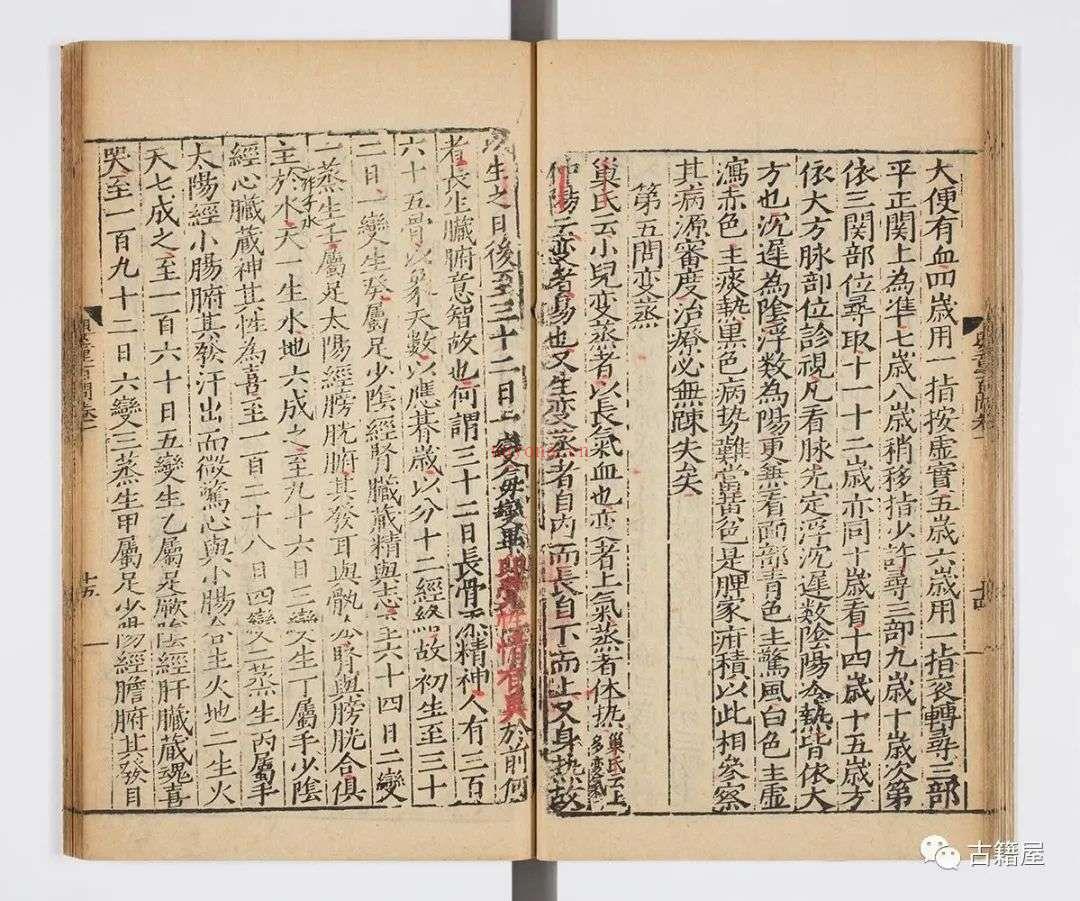 大便有血四歲用一指按虛實五歲六歲用一指衮轉尋三部
平正関上為準七歲八歲稍移指少許尋三部九歲十歲次第
依三関部位尋取十一十二歲亦同十歲看十四歲十五歲方
依大方脉部位診視凡看脉先定浮沉遲数陰陽冷熱皆依大
方也沉遲為陰浮数為陽更無看面部青色主驚風白色主虛
瀉赤色主痰熱黒色病势難當黃色是脾家疳積以此相參察
其病源審度治療必無踈失矣
第五問变蒸
巢氏云小兒变蒸者以長氣血也变者上氣蒸者体热
巢氏云上
多变氣
仲陽云变者易也又生变蒸者自内而長自下而上又身热故
十四
生之日後至三十二日一變
每變
即覺性情有異於前何
者長生臟腑意智故也何謂三十二日長骨添精神人有三百
六十五骨以象天数以應朞歲以分十二經絡故初生至三十
二日一變生癸屬足少陰經腎臟藏精與志至六十四日二變
一蒸生壬屬足太陽經膀胱腑其發耳與骩冷腎與膀胱合俱
作子水
主於水天一生水地六成之至九十六日三變生丁屬手少陰
經心臟藏神其性為喜至一百二十八日四變二蒸生丙屬手
太陽經小腸腑其發汗出而微驚心與小腸合主火地二生火
天七成之至一百六十日五變生乙屬足厥陰經肝臟藏魂喜
哭至一百九十二日六變三蒸生甲屬足少陽經膽腑其發目
十五
古籍屋